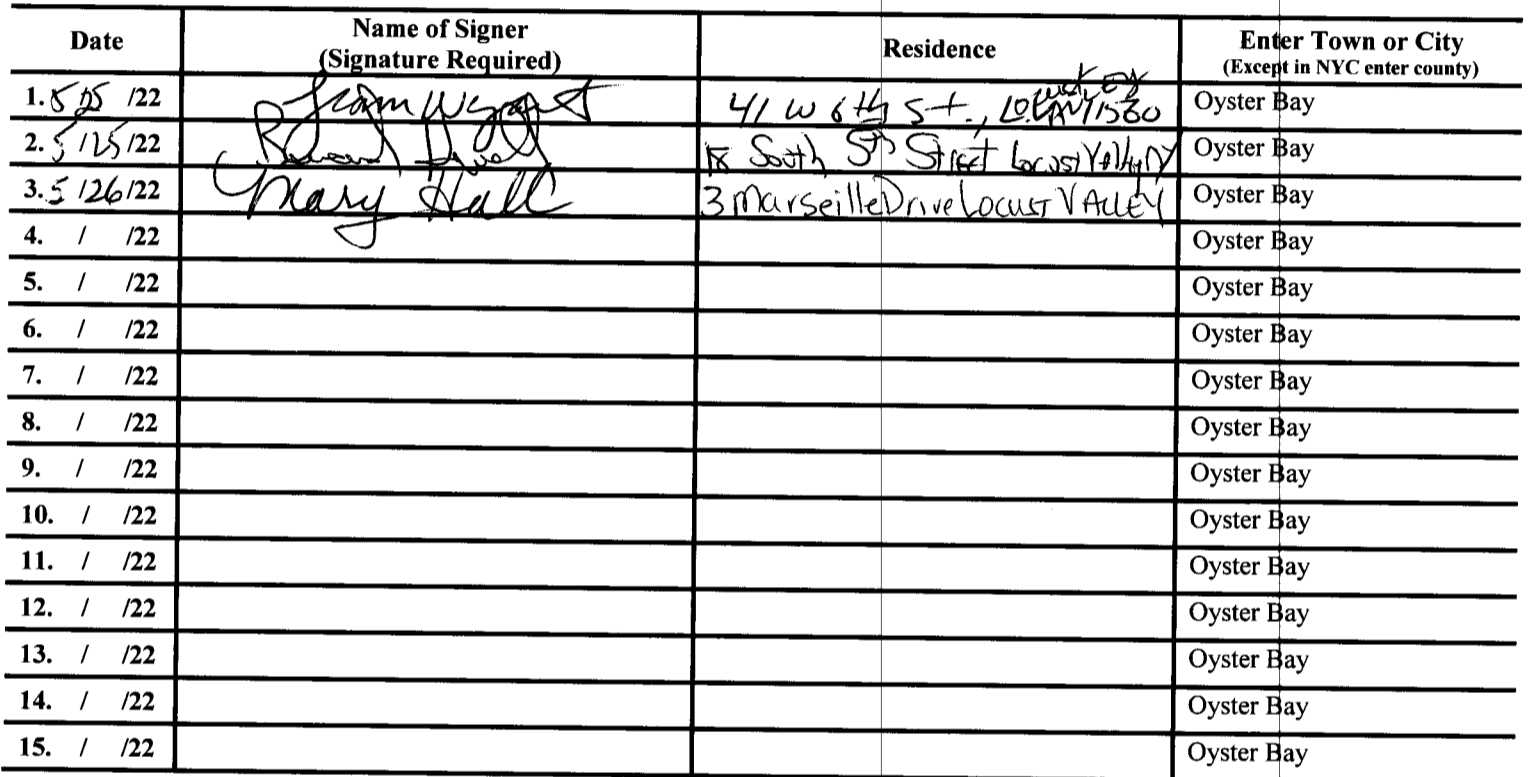 Date Name of Signer (Signature Required) Residence Enter Town or City (Except in NYC enter county)
1. /22 41 W 6th St., Oyster Bay
2. 5/25/22 South 5th Street Locust Valley NY Oyster Bay
3. 5/26/22 Mary Hall 3 Marseille Drive Locust VALLEY Oyster Bay
4. / /22 Oyster Bay
5. / /22 Oyster Bay
6. / /22 Oyster Bay
7. / /22 Oyster Bay
8. / /22 Oyster Bay
9. / /22 Oyster Bay
10. / /22 Oyster Bay
11. / /22 Oyster Bay
12. / /22 Oyster Bay
13. / /22 Oyster Bay
14. / /22 Oyster Bay
15. / /22 Oyster Bay